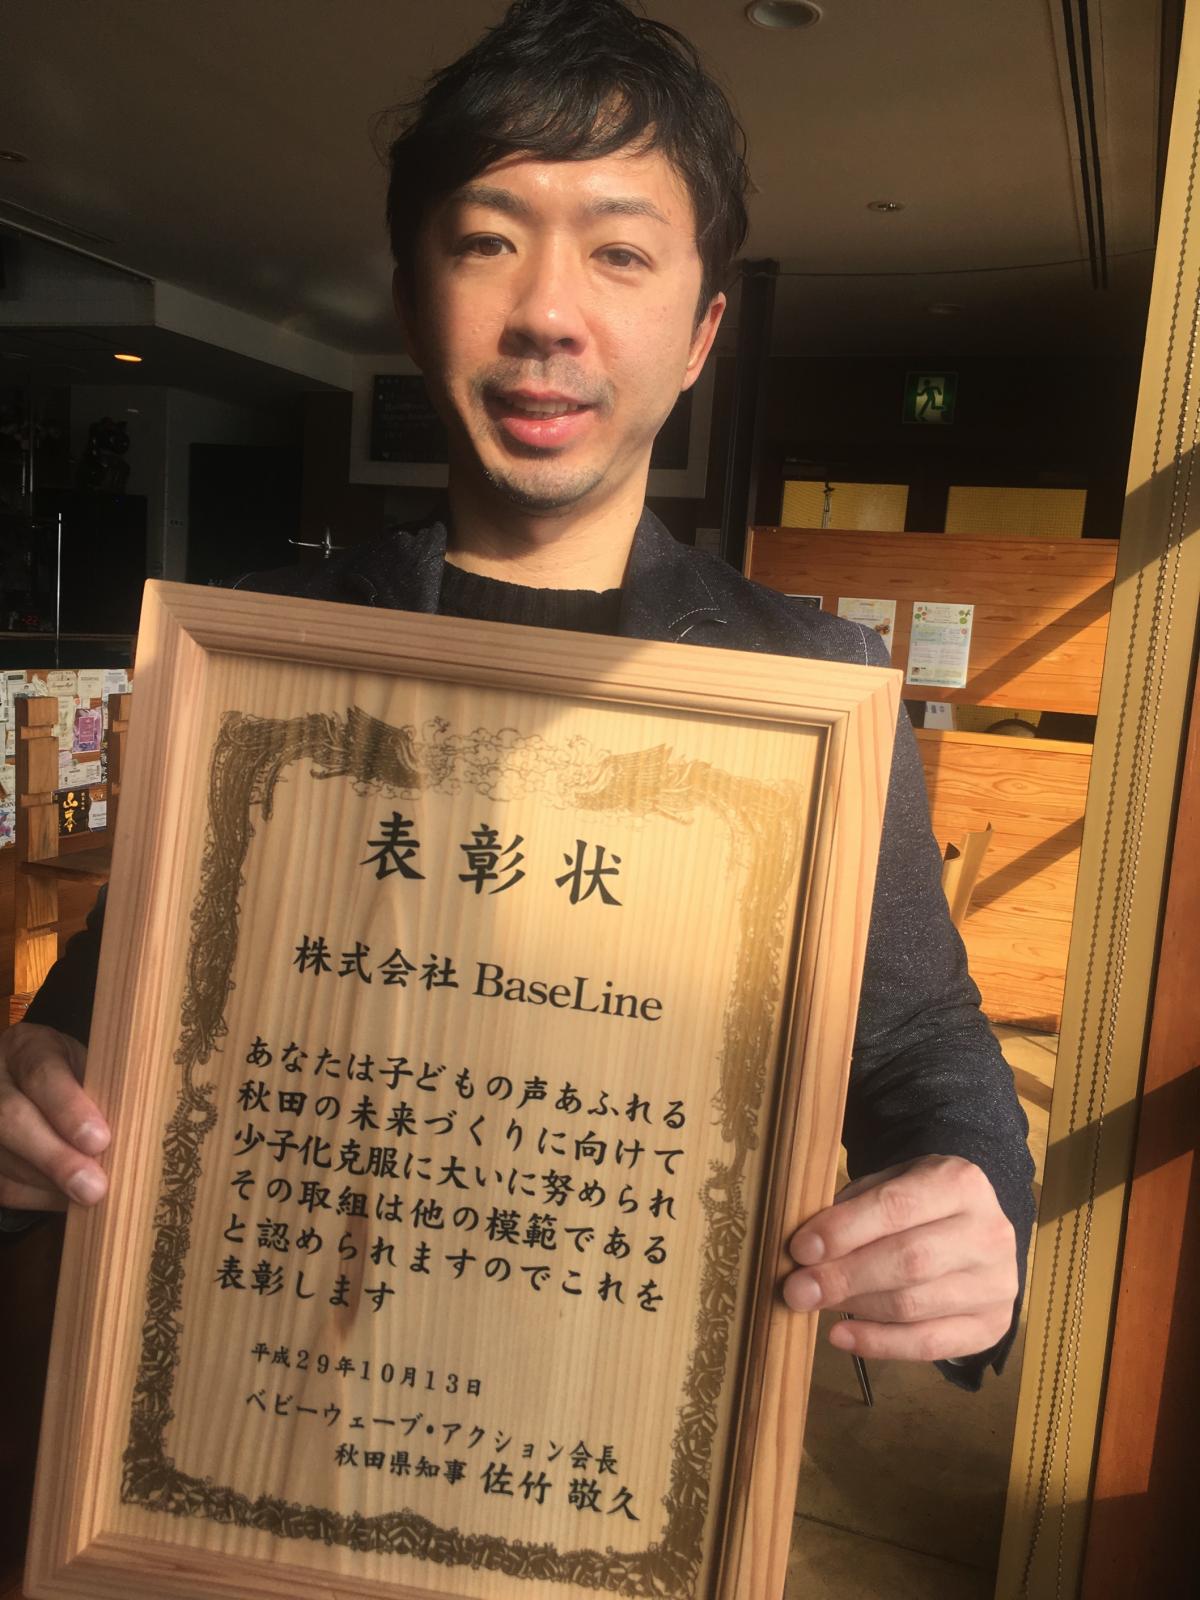 表彰状
株式会社 BaseLine
あなたは子どもの声あふれる
秋田の未来づくりに向けて
少子化克服に大いに努められ
その取組は他の模範である
と認められますのでこれを
表彰します
平成29年10月13日
ベビーウェーブ・アクション会長
秋田県知事 佐竹 敬久